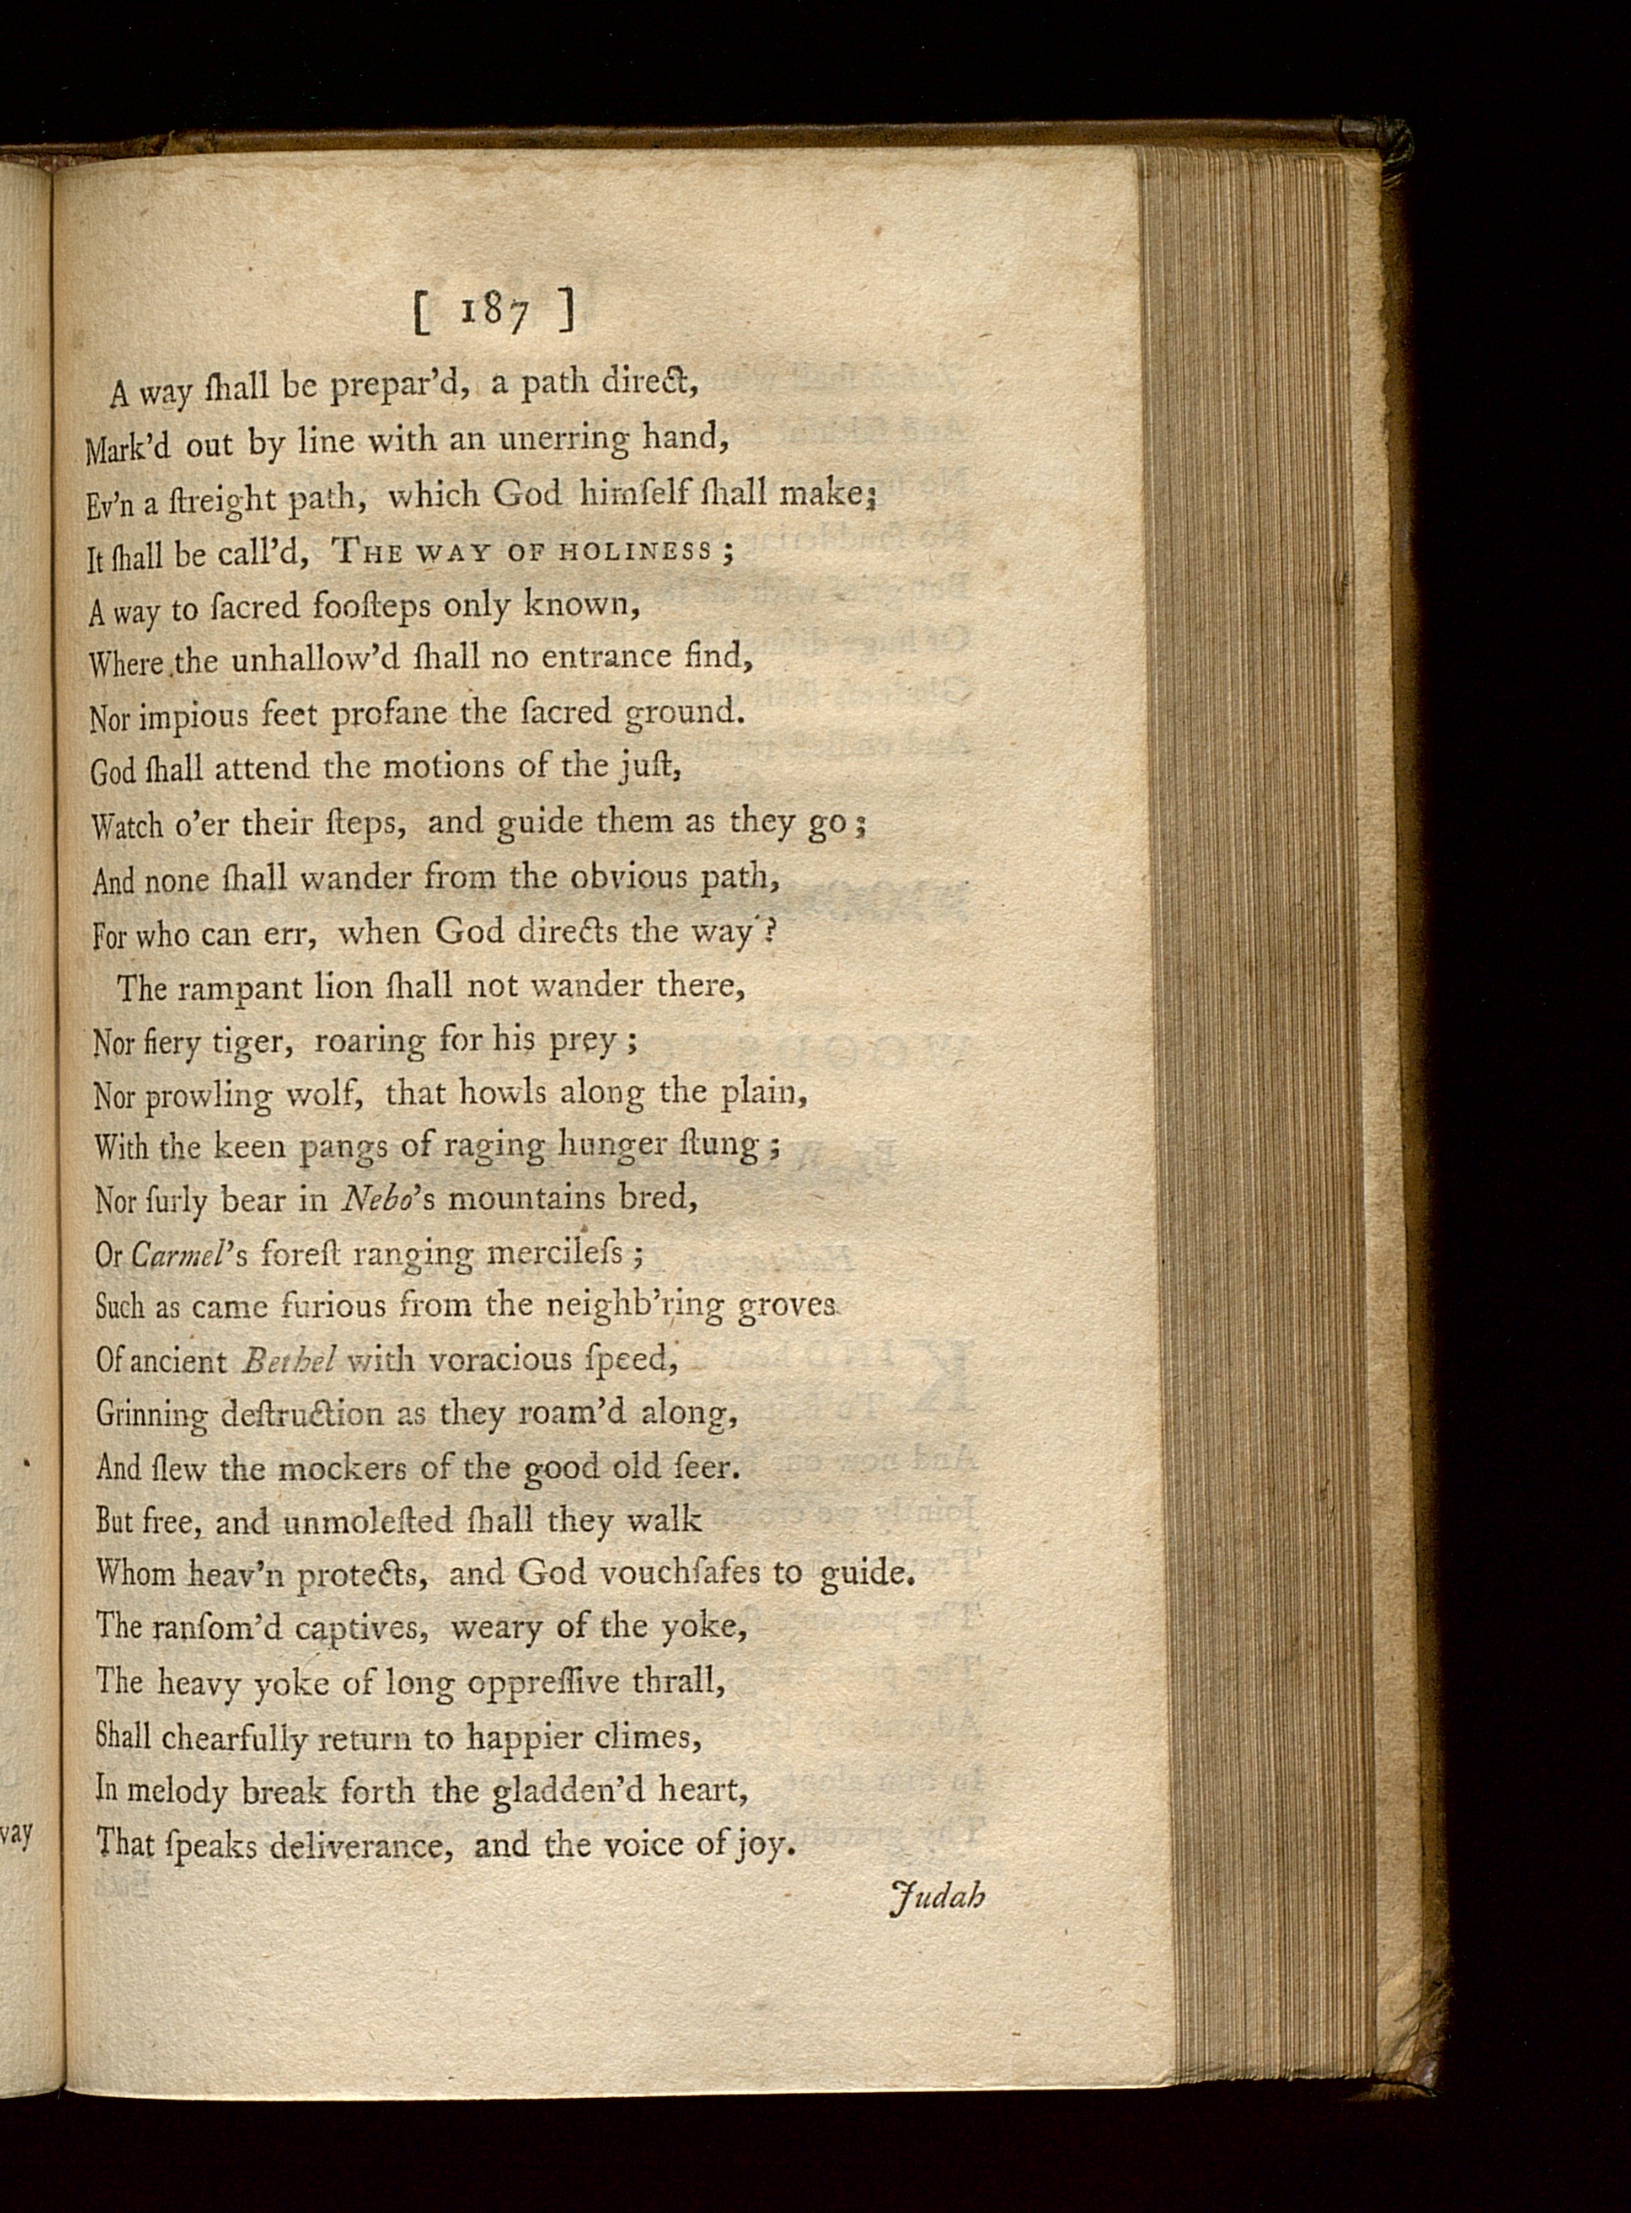 [ 187 ]
A way ſhall be prepar'd, a path direct,
Mark'd out by line with an unerring hand,
Ev'n a ſtreight path, which God himſelf ſhall make;
It ſhall be call'd, THE WAY OF HOLINESS;
A way to ſacred fooſteps only known,
Where the unhallow'd ſhall no entrance find,
Nor impious feet profane the ſacred ground.
God ſhall attend the motions of the juſt,
Watch o'er their ſteps, and guide them as they go;
And none ſhall wander from the obvious path,
For who can err, when God directs the way?
The rampant lion ſhall not wander there,
Nor fiery tiger, roaring for his prey;
Nor prowling wolf, that howls along the plain,
With the keen pangs of raging hunger ſtung;
Nor ſurly bear in Nebo's mountains bred,
Or Carmel's foreſt ranging mercileſs;
Such as came furious from the neighb'ring groves
Of ancient Bethel with voracious ſpeed,
Grinning deſtruction as they roam'd along,
And ſlew the mockers of the good old ſeer.
But free, and unmoleſted ſhall they walk
Whom heav'n protects, and God vouchſafes to guide.
The ranſom'd captives, weary of the yoke,
The heavy yoke of long oppreſſive thrall,
Shall chearfully return to happier climes,
In melody break forth the gladden'd heart,
That ſpeaks deliverance, and the voice of joy.
Judah